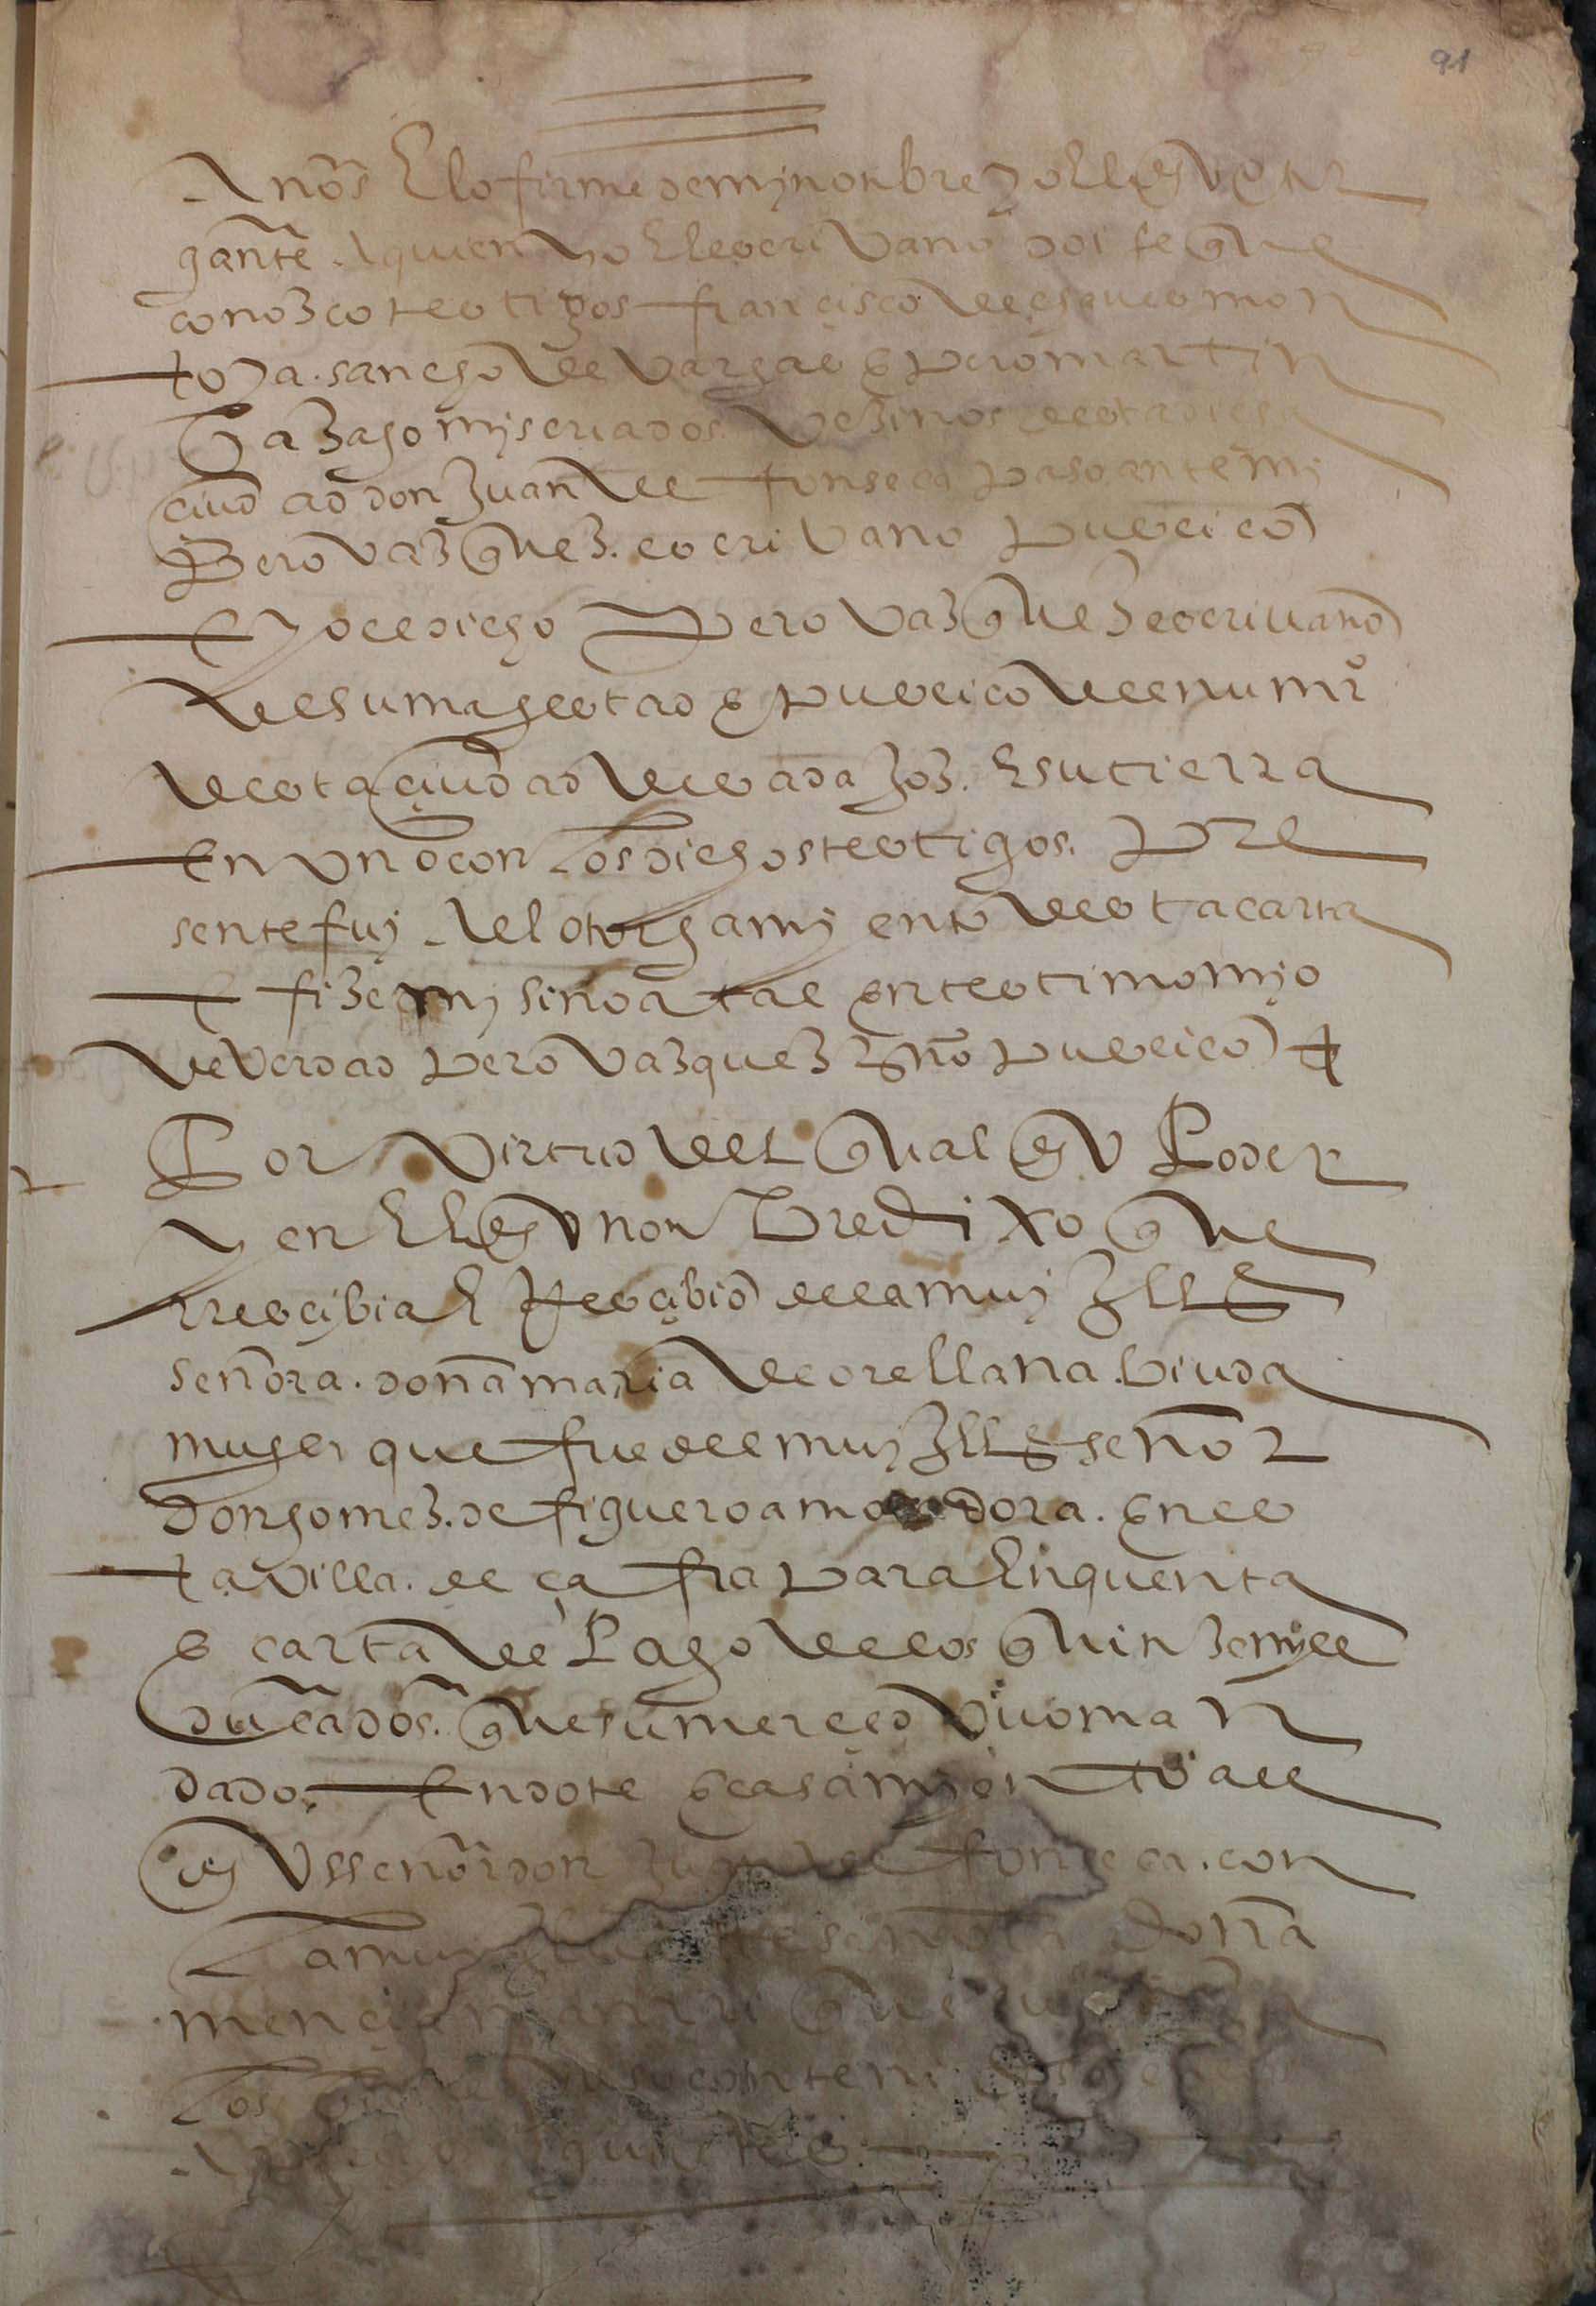 91
Anos E lo firme de mi nonbre yo el dho otor
gante Al quien yo El escrivano doi fe que
conozco testigos francisco de esquivel mon
toya. sancho de vargas e pero martin
mis criados vezinos desta dicha
ciudad don Juan de fonseca paso ante mi
Pero vazquez. escrivano publico
E yo el dicho Pero vazquez escrivano
de su magestad e publico del numro
desta ciudad de badajoz. E su tierra
En uno con los dichos testigos. pre
sente fuy Al otorgamiento desta carta
E fize mi sino a tal en testimonyo
de verdad pero vazquez esno publico
Por virtud del qual dho Poder
y en El dho nonbre dixo que
rrescibia E Rescibio de la muy Ille
señora. doña maria de orellana. biuda
muger que fue del muy Ille señor
don gomez. de figueroa moradora. en es
ta villa. de çafra para En quenta
e carta de Pago de los quinze mill
ducados. que su merced uvo man
dado, En dote e casamiento al
dho señor don Juan de fonseca. con
la muy señora doña
mencia manrri que su
los